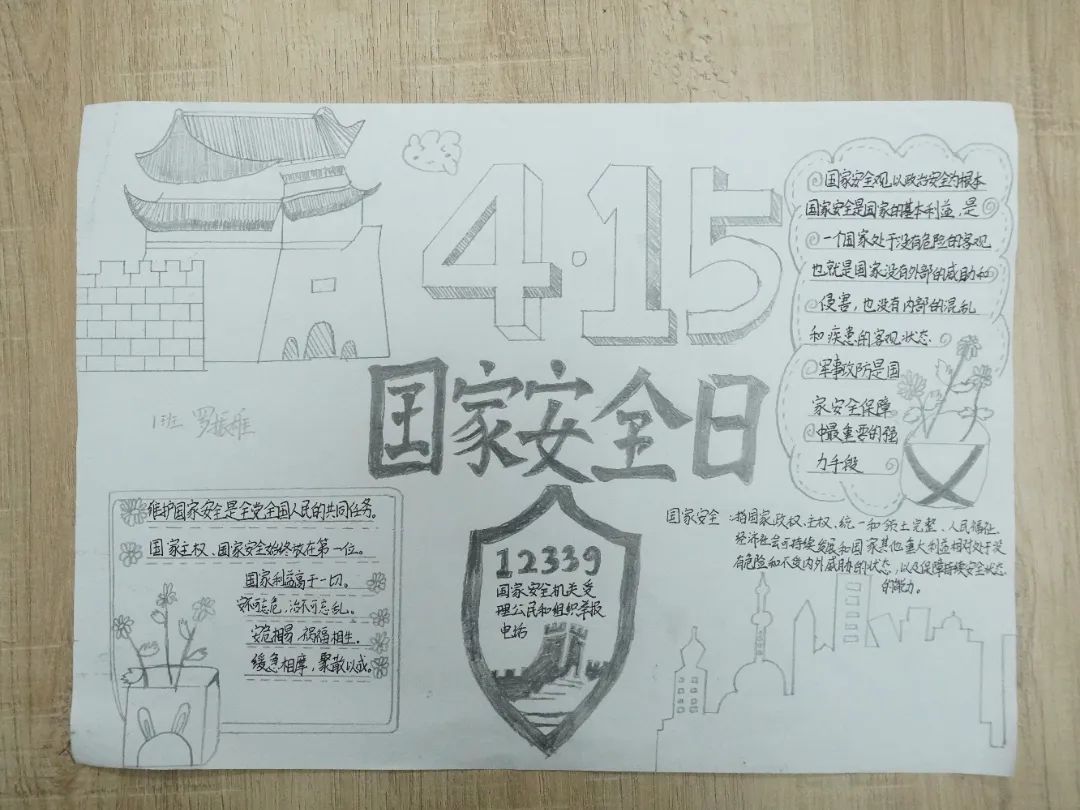 4·15
国家安全日
国家安全观,以政治安全为根本
国家安全是国家的基本利益,是
一个国家处于没有危险的客观
也就是国家没有外部的威助和
侵害,也没有内部的混乱
和疾患的客观状态
军事攻防是国
家安全保障
中最重要的强
力手段
1班 罗振
维护国家安全是全党全国人民的共同任务。
国家主权、国家安全始终放在第一位。
国家利益高于一切。
安不可忘危,治不可忘乱。
安危相易,祸福相生。
缓急相摩,聚散以成。
12339
国家安全机关受
理公民和组织举报
电话
国家安全:指国家政权、主权、统一和领土完整、人民福祉、
经济社会可持续发展和国家其他重大利益相对处于没
有危险和不受内外威胁的状态,以及保障持续安全状态
的能力。